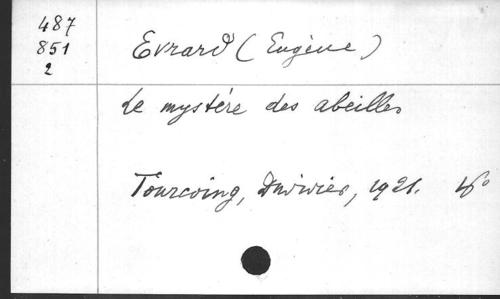 487
851
2
Evrard (Eugène)
Le mystère des abeilles
Tourcoing, Duvivier, 1921.